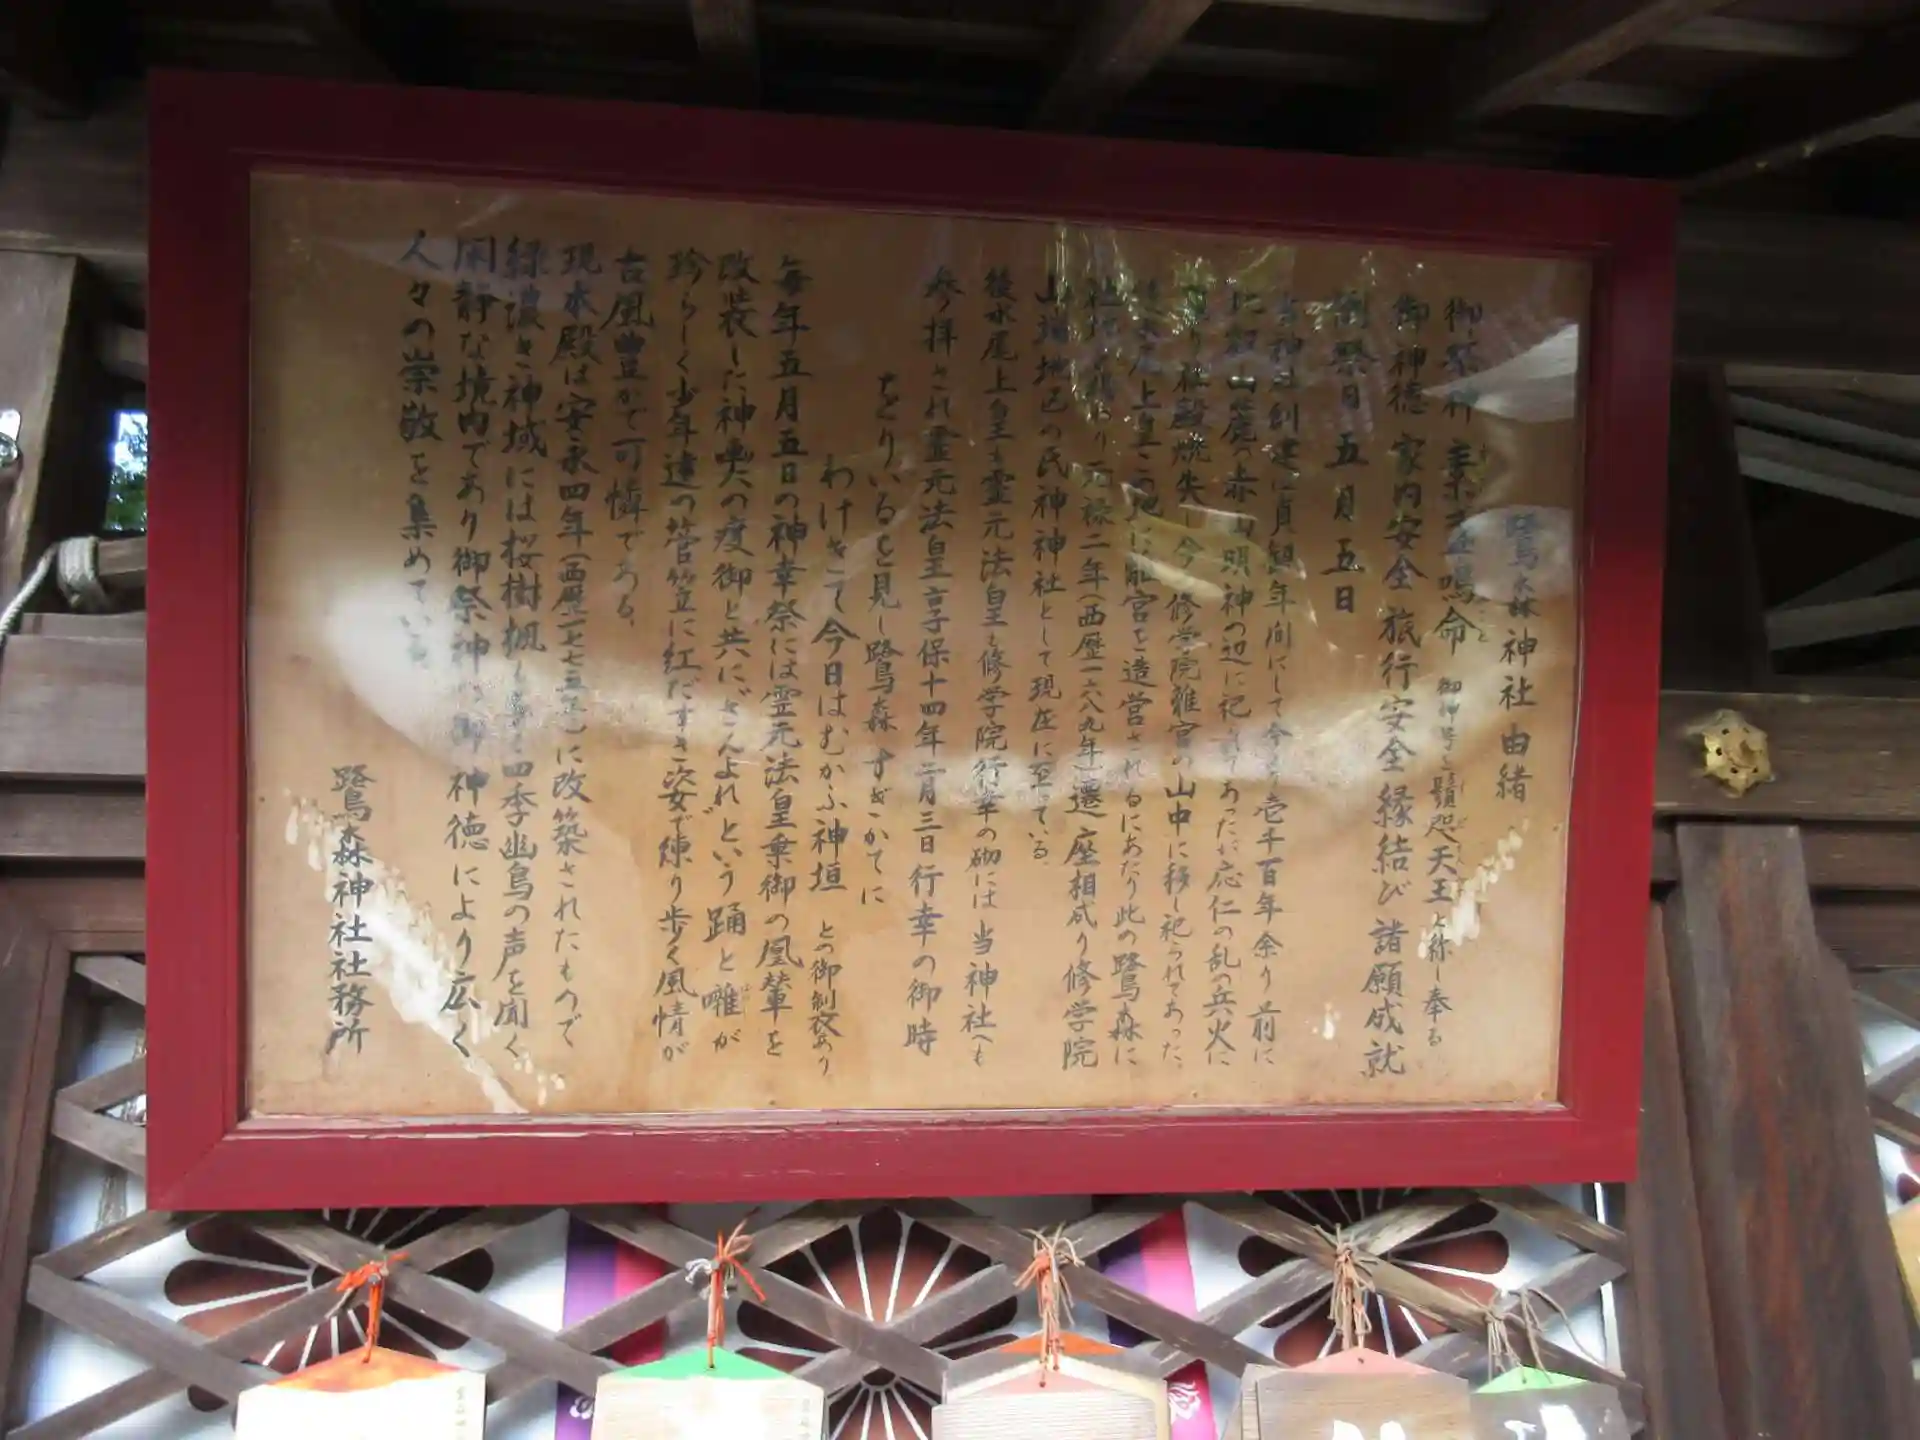 鷺森神社由緒
御祭神 素盞鳴命 御神号を鬚咫天王と称し奉る
御神徳 家内安全 旅行安全 縁結び 諸願成就
例祭日 五月五日
当神社創建は貞観年間にして今より壱千百年余り前に
比叡山麓の赤山明神の辺に祀られてあったが応仁の乱の兵火に
罹り社殿焼失し今の修学院離宮の山中に移し祀られてあった、
後水尾上皇この地に離宮を造営されるにあたり此の鷺森に
社地を賜わり元禄二年(西歴一六八九年)遷座相成り修学院
山端地区の氏神神社として現在に至っている。
後水尾上皇も霊元法皇も修学院行幸の砌には当神社へも
参拝され霊元法皇享保十四年二月三日行幸の御時
をりいるを見し鷺森すぎがてに
わけきて今日はむかふ神垣 との御製あり
毎年五月五日の神幸祭には霊元法皇乗御の鳳輦を
改装した神輿の渡御と共に"さんよれ"という踊と囃が
珍らしく少年達の菅笠に紅だすき姿で練り歩く風情が
古風豊かで可憐である。
現本殿は安永四年(西歴一七七五年)に改築されたもので
緑濃き神域には桜樹楓も多く四季幽鳥の声を聞く
閑静な境内であり御祭神の御神徳により広く
人々の崇敬を集めている
鷺森神社社務所